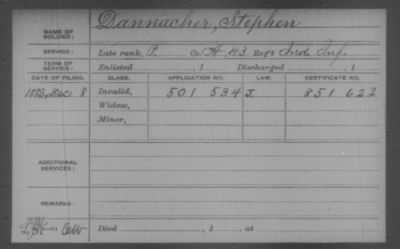 Dannacher, Stephen
NAME OF SOLDIER:
SERVICE: Late rank, P. Co. A 43 Reg't Ind. Inf.
TERM OF SERVICE: Enlisted , 1 Discharged , 1
DATE OF FILING. CLASS. APPLICATION NO. LAW. CERTIFICATE NO.
1883, Dec 8 Invalid, 501 534 851 622
Widow,
Minor,
ADDITIONAL SERVICES:
REMARKS:
Died , 1 , at